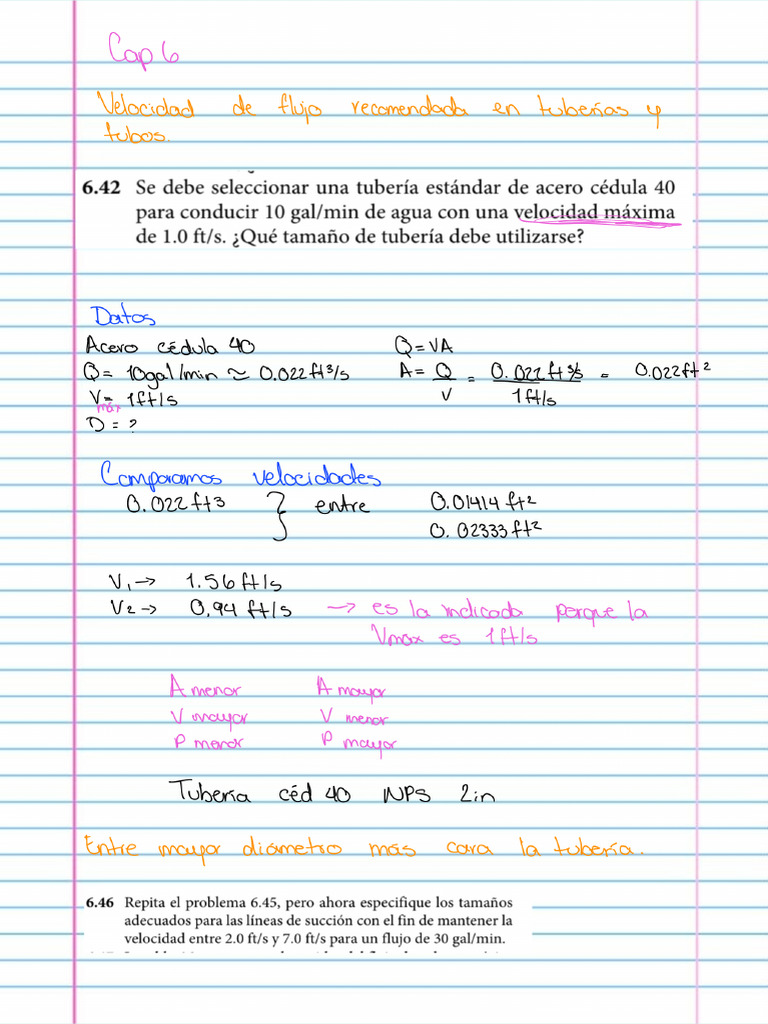 Cap 6
Velocidad de flujo recomendada en tuberías y
tubos.
6.42 Se debe seleccionar una tubería estándar de acero cédula 40
para conducir 10 gal/min de agua con una velocidad máxima
de 1.0 ft/s. ¿Qué tamaño de tubería debe utilizarse?
Datos
Acero cédula 40 Q=VA
Q= 10gal/min ≃ 0.022ft³/s A= Q/V = 0.022ft³/s / 1ft/s = 0.022ft²
V= 1ft/s
máx
D = ?
Comparamos velocidades
0.022ft3 } entre 0.01414 ft²
0.02333ft²
V₁→ 1.56ft/s
V2→ 0,94 ft/s → es la indicada porque la
Vmax es 1ft/s
A menor A mayor
V mayor V menor
P menor P mayor
Tubería céd 40 NPS 2in
Entre mayor diámetro más cara la tubería.
6.46 Repita el problema 6.45, pero ahora especifique los tamaños
adecuados para las líneas de succión con el fin de mantener la
velocidad entre 2.0 ft/s y 7.0 ft/s para un flujo de 30 gal/min.